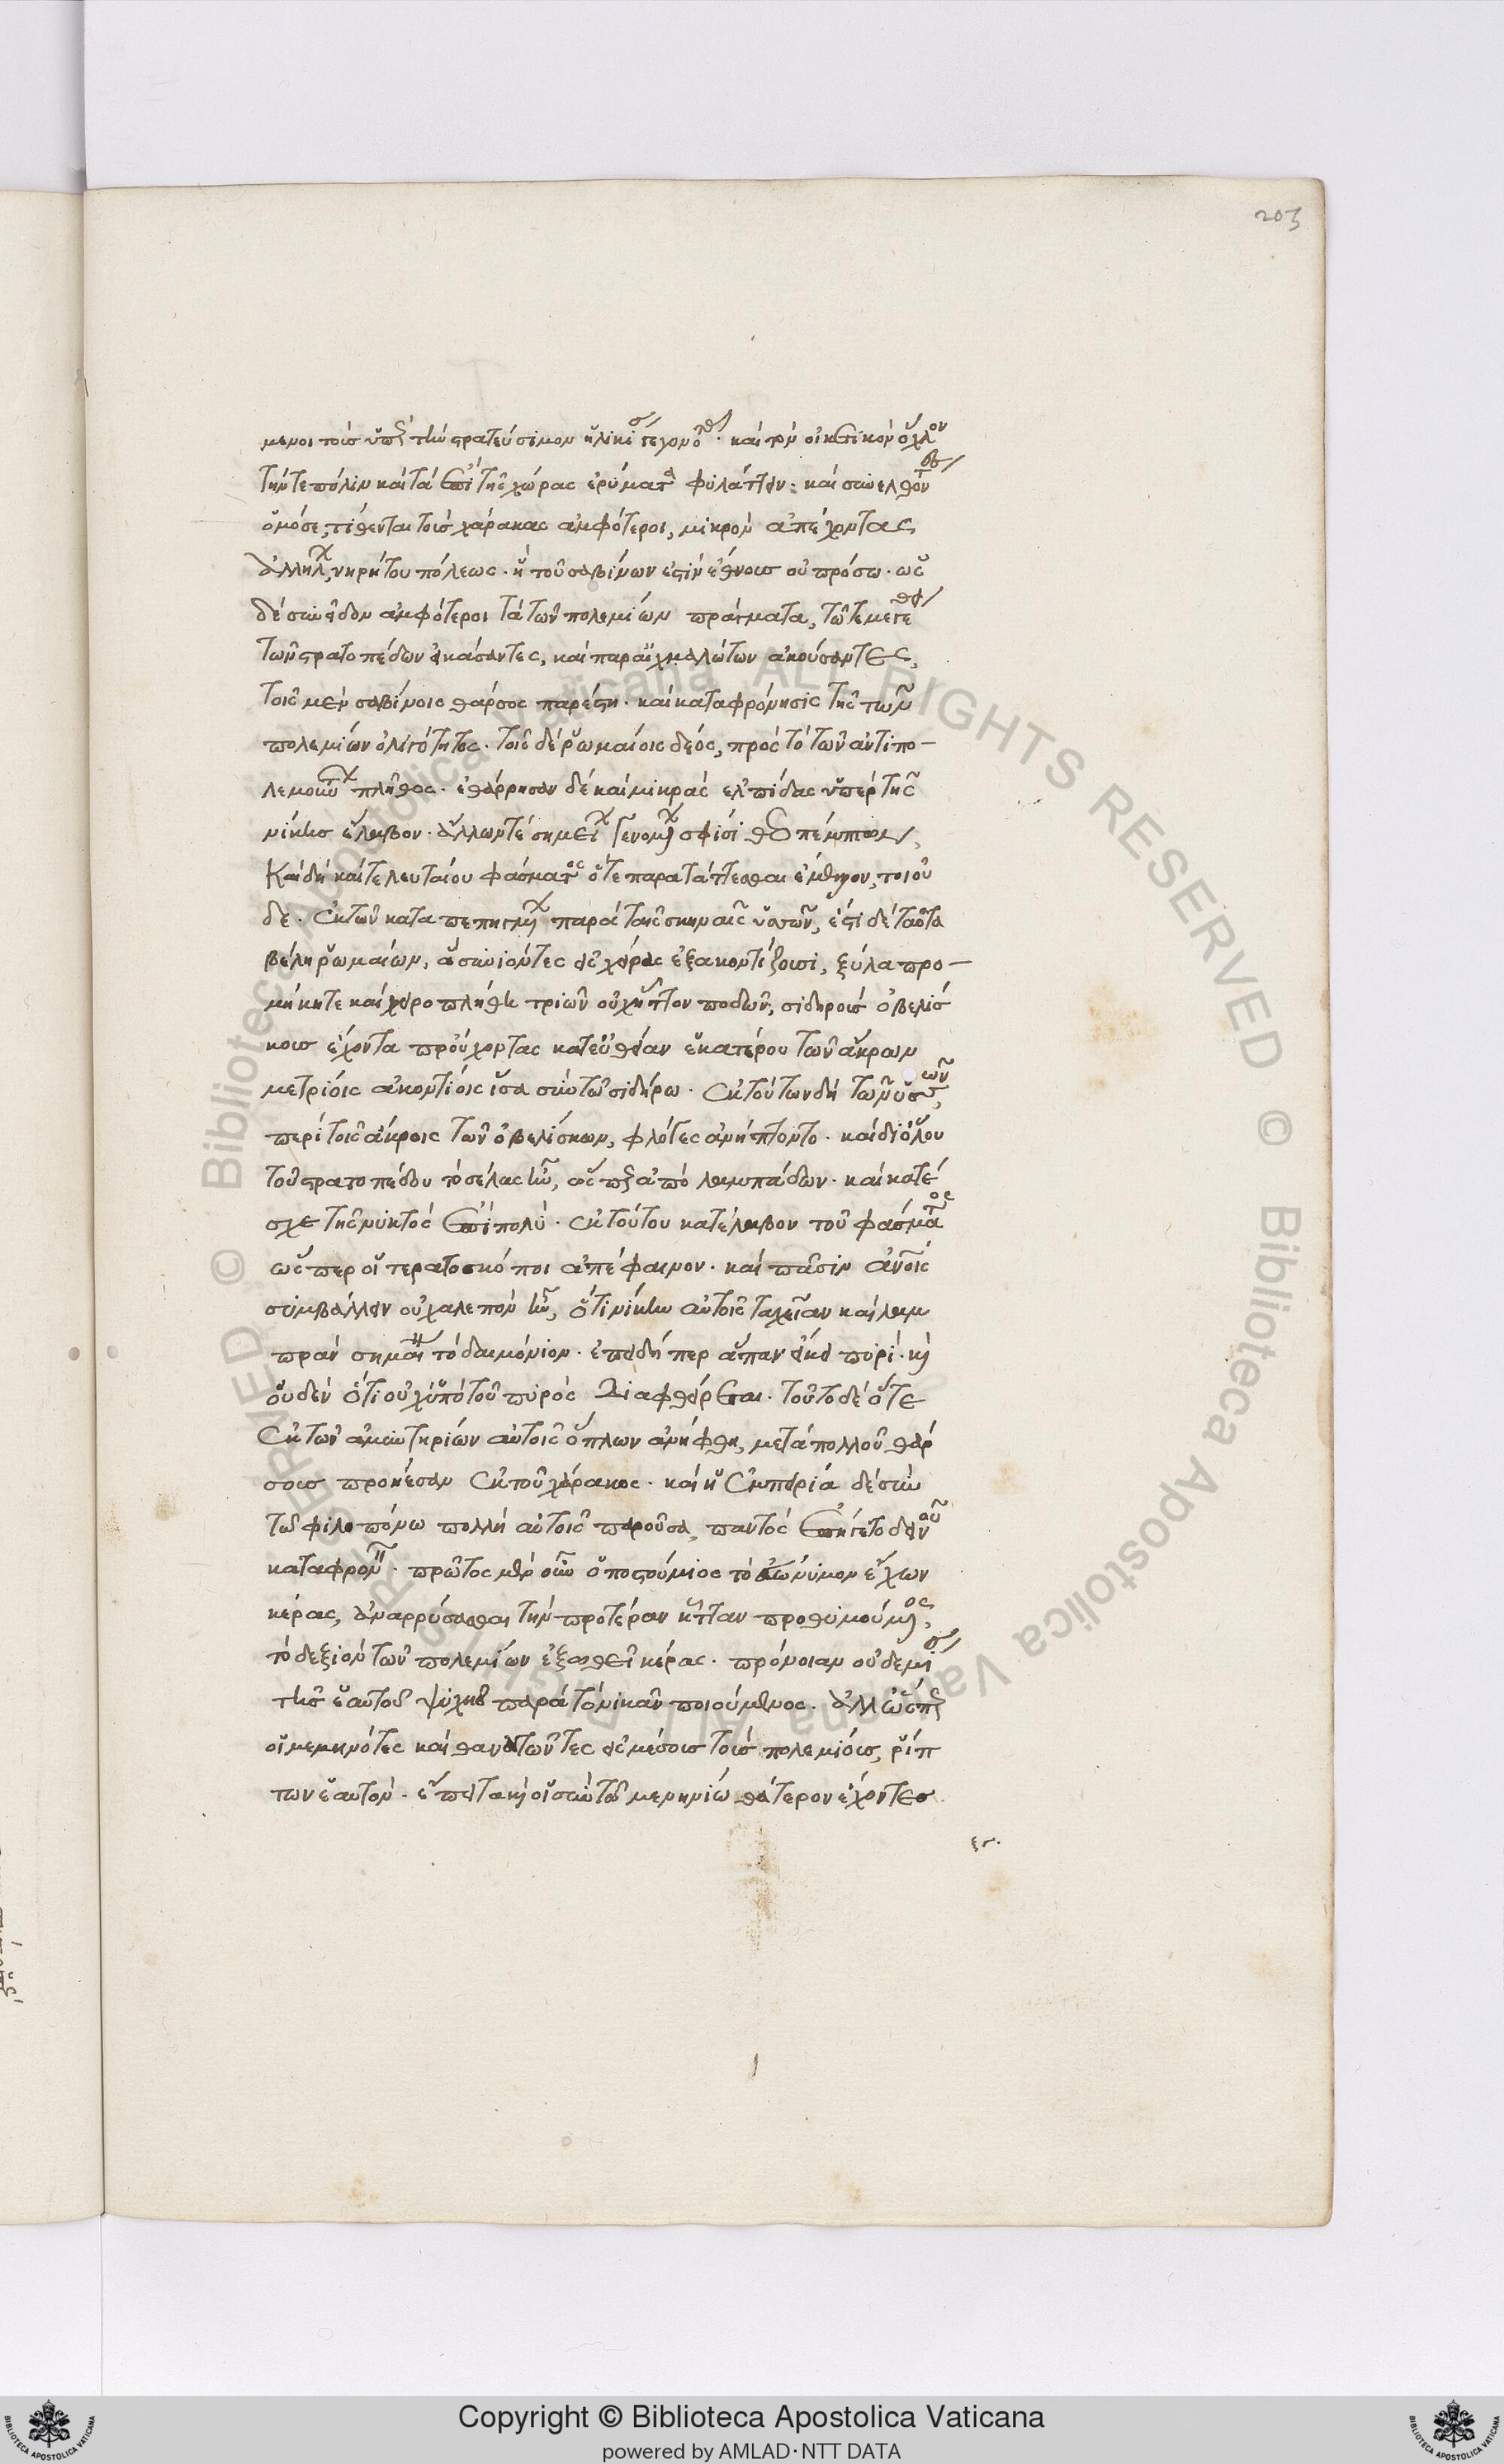 203
μενοι τοὺς ὑπὲρ τὴν στρατεύσιμον ἡλικίαν γεγονότας. καὶ τὸν οἰκετικὸν ὄχλον
τήν τε πόλιν καὶ τὰ ἐπὶ τῆς χώρας ἐρύματα φυλάττειν. καὶ συνελθόντες
ὁμόσε, τίθενται τοὺς χάρακας ἀμφότεροι, μικρὸν ἀπέχοντας
ἀλλήλων, νηρήτου πόλεως. ἣ τοῦ σαβίνων ἐστὶν ἔθνους οὐ πρόσω. ὡς
δὲ συνεῖδον ἀμφότεροι τὰ τῶν πολεμίων πράγματα, τῶ τε μεγέθει
τῶν στρατοπέδων εἰκάσαντες, καὶ παρ αἰχμαλώτων ἀκούσαντες,
τοῖς μὲν σαβίνοις θάρσος παρέστη. καὶ καταφρόνησις τῆς τῶν
πολεμίων ὀλιγότητος. τοῖς δὲ ῥωμαίοις δέος, πρὸς τὸ τῶν ἀντιπο-
λεμούντων πλῆθος. ἐθάρρησαν δὲ καὶ μικρὰς ἐλπίδας ὑπὲρ τῆς
νίκης ἔλαβον. ἄλλων τέ σημείων γενομένων σφίσι
καὶ δὴ καὶ τελευταίου φάσματος ὅτε παρατάττεσθαι ἔμελλον, τοιοῦ
δε. ἐκ τῶν καταπεπηγμένων παρὰ ταῖς σκηναῖς ὑσσῶν, ἔστι δὲ ταῦτα
βέλη ῥωμαίων, ἃ συνιόντες εἰς χεῖρας ἐξακοντίζουσι, ξύλα προ-
μήκη τε καὶ χειροπληθῆ τριῶν οὐχ ἧττον ποδῶν, σιδηροῦς ὀβελίσ
κους ἔχοντα προὔχοντας κατ εὐθεῖαν ἑκατέρου τῶν ἄκρων
μετρίοις ἀκοντίοις ἴσα σὺν τῶ σιδήρω. ἐκ τούτων δὴ τῶν ὑσσῶν,
περὶ τοῖς ἄκροις τῶν ὀβελίσκων, φλόγες ἀνήπτοντο. καὶ δι ὅλου
τοῦ στρατοπέδου τὸ σέλας ἦν, ὥσπερ ἀπὸ λαμπάδων. καὶ κατέ
σχε τῆς νυκτὸς ἐπὶ πολύ. ἐκ τούτου κατέλαβον τοῦ φάσματος
ὥσπερ οἱ τερατοσκόποι ἀπέφαινον. καὶ πᾶσιν ἀνθρώποις
συμβάλλειν οὐ χαλεπὸν ἦν, ὅτι νίκην αὐτοῖς ταχεῖαν καὶ λαμ
πρὰν σημαίνει τὸ δαιμόνιον. ἐπειδήπερ ἅπαν εἴκει πυρί. καὶ
οὐδὲν ὅτι οὐχ ὑπὸ τοῦ πυρὸς διαφθείρεται. τοῦτο δὲ ὅτε
ἐκ τῶν ἀμυντηρίων αὐτοῖς ὅπλων ἀνήφθη, μετὰ πολλοῦ θάρ
σους προῄεσαν ἐκ τοῦ χάρακος. καὶ ἡ ἐμπειρία δὲ σὺν
τῶ φιλοπόνω πολλὴ αὐτοῖς παροῦσα, παντὸς ἐπήγετο δεινοῦ
καταφρονεῖν. πρῶτος μὲν οὖν ὁ ποστούμιος τὸ εὐώνυμον ἔχων
κέρας, ἀναρρύσασθαι τὴν προτέραν ἧτταν προθυμούμενος,
τὸ δεξιὸν τῶν πολεμίων ἐξωθεῖ κέρας. πρόνοιαν οὐδεμίαν
τῆς ἑαυτοῦ ψυχῆς παρὰ τὸ νικᾶν ποιούμενος. ἀλλ ὥσπερ
οἱ μεμηνότες καὶ θανατῶντες εἰς μέσους τοὺς πολεμίους, ῥίπ
των ἑαυτόν. ἔπειτα καὶ οἱ σὺν τῶ μενηνίω θάτερον ἔχοντες